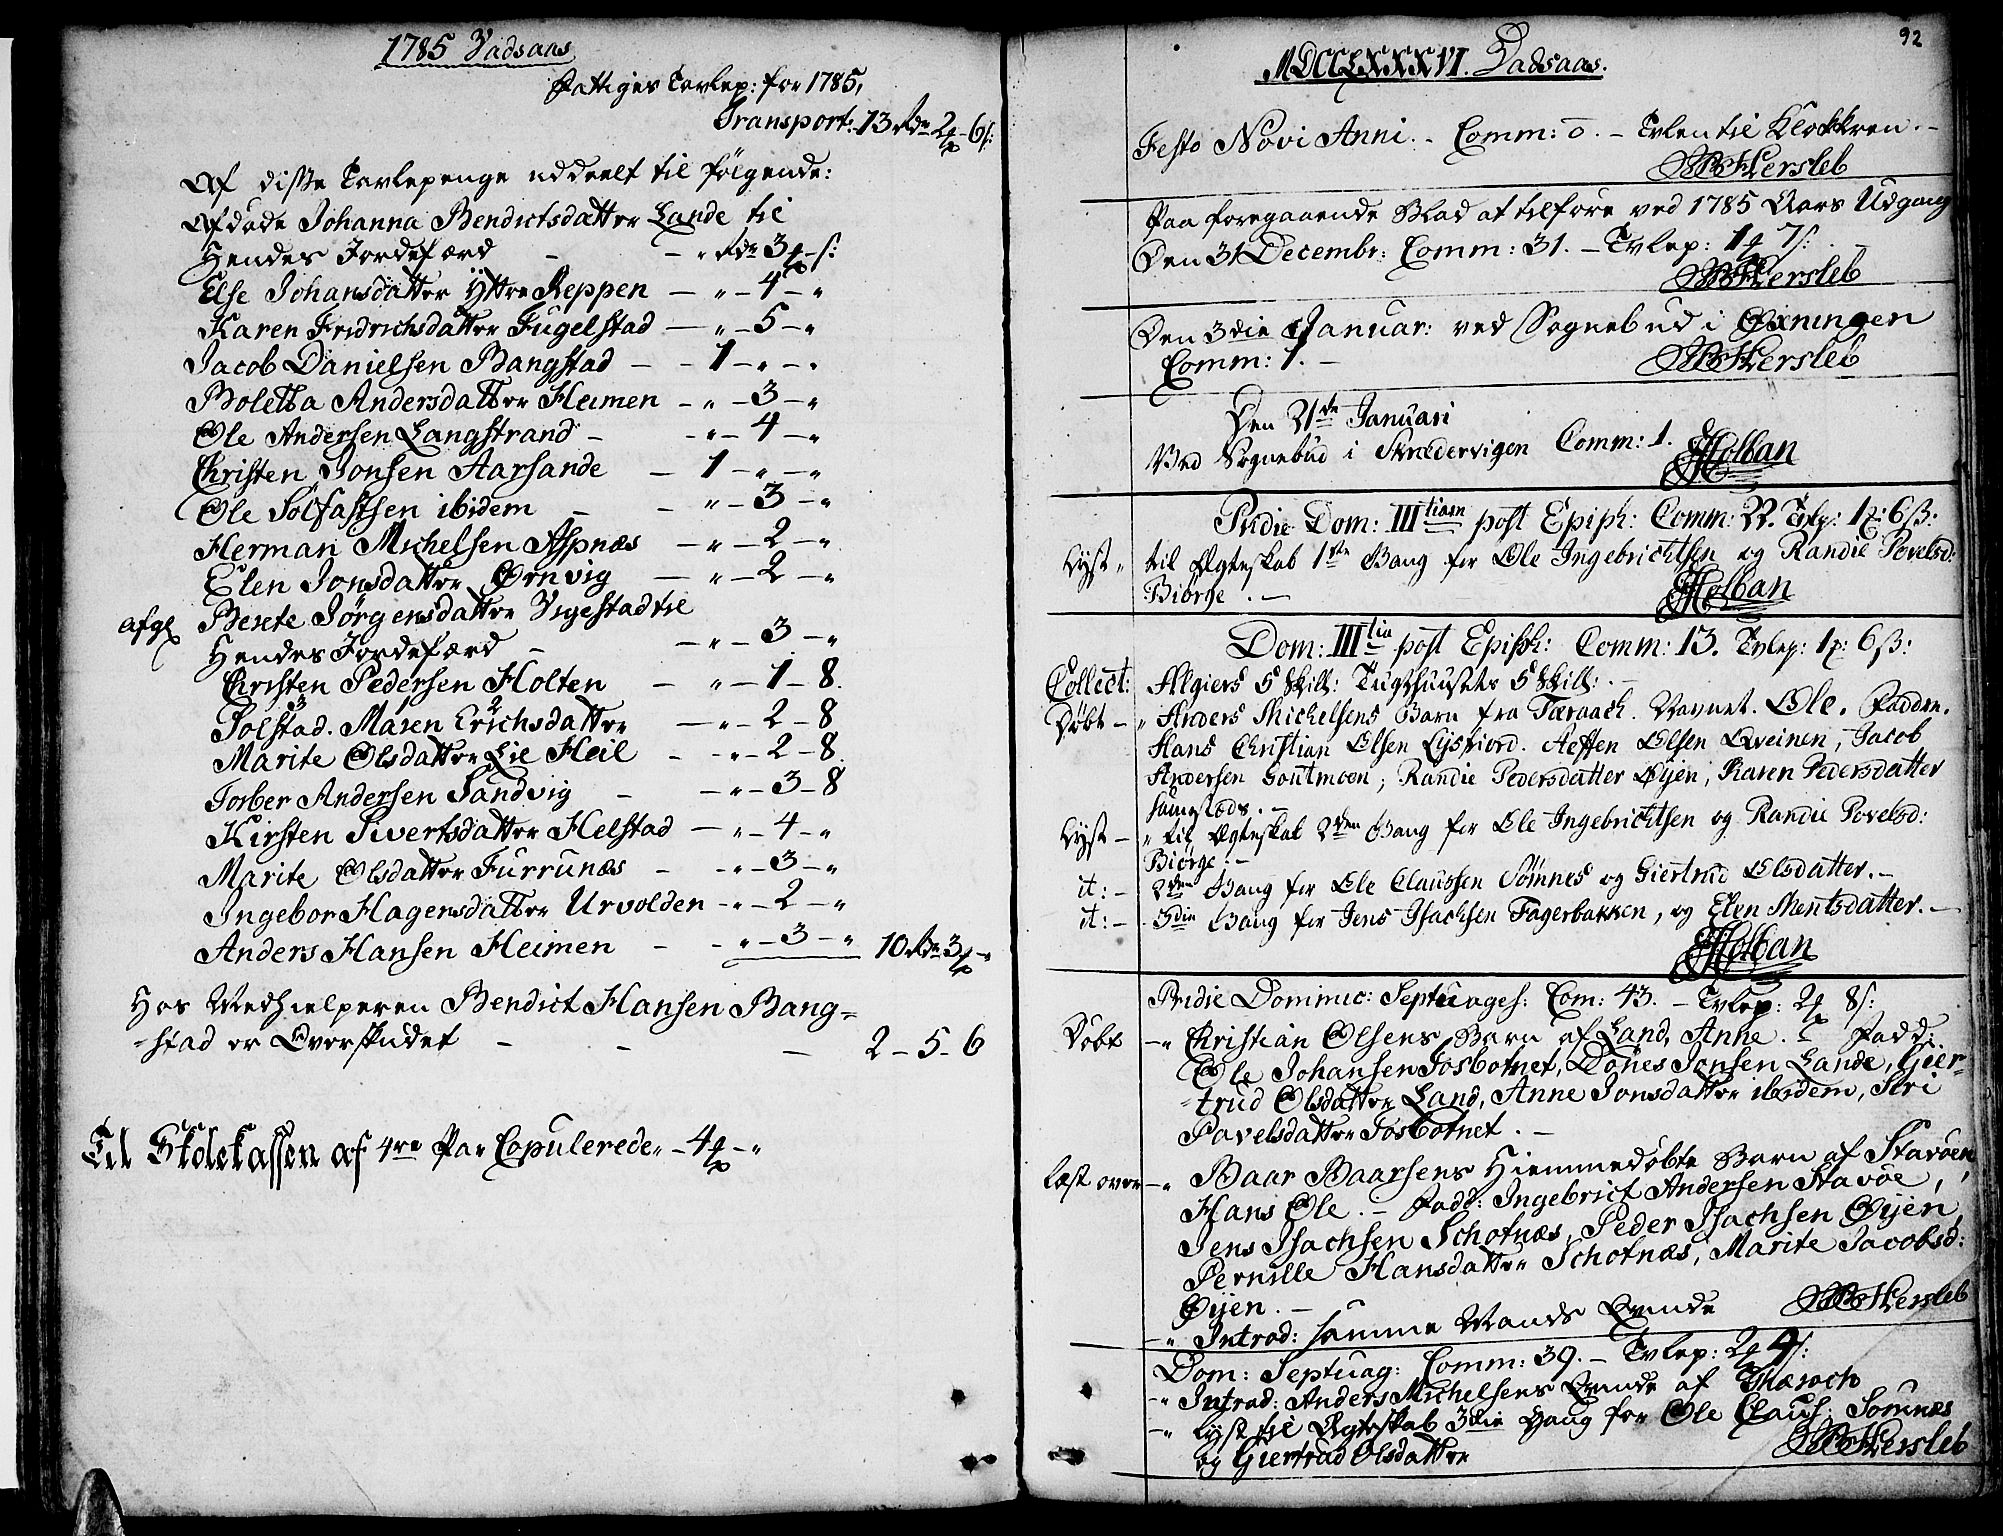 1785 Vadsaas
Fattiges Tavlep: for 1785,
Transport: 13 Rdr 2 ₰ - 6 s:
Af disse Tavlepenge uddeelt til følgende:
Afdøde Johanna Bendictsdatter Lande til
Hendes Jordefærd - - „ Rdr 3 ₰ - s:
Else Johansdatter Yttre Reppen - „ - 4 - „
Karen Fridrichsdatter Fugelstad - „ - 5 - „
Jacob Danielsen Bangstad - - 1 - „ - „
Boletta Andersdatter Heimen - „ - 3 - „
Ole Andersen Langstrand - - „ - 4 - „
Christen Jonsen Aarsande - 1 - „ - „
Ole Solfastsen ibidem - - „ - 3 - „
Herman Michelsen Aspnæs - „ - 2 - „
Elen Jonsdatter Ørnvig - „ - 2 - „
afgl Berete Jörgensdatter Vigestad til
Hendes Jordefærd - - „ - 3 - „
Christen Pedersen Holten - „ - 1 - 8.
Solstad. Maren Erichsdatter - „ - 2 - 8
Marite Olsdatter Lie Heil - „ - 2 - 8
Torber Andersen Sandvig - - „ - 3 - 8
Kirsten Sivertsdatter Helstad - „ - 4 - „
Marite Olsdatter Furrunæs - - „ - 3 - „
Ingebor Hagensdatter Urvolden - „ - 2 - „
Anders Hansen Heimen - - „ - 3 - „ 10 Rdr 3 ₰ - „
Hos Medhielperen Bendict Hansen Bang=
=stad er Overskudet - - - 2 - 5 - 6
Til Skolekassen af 4re Par Copulerede „ - 4 ₰ - „
92
MDCCLXXXVI. Vadsaas.
Festo Novi Anni. - Comm: 0. - Tvlen til Klokkren. -
Hersleb
Paa foregaaende Blad at tilføre ved 1785 Aars Udgang
Den 31 Decembr: Comm: 31. - Tvlep: 1 ₰ 7 s:
Hersleb
Den 3die Januar: ved Sognebud i Øxningen
Comm: 1. -
Hersleb
Den 21de Januari
Ved Sognebud i Skredervigen Comm: 1. Holban
Pridie Dom: IIItiam post Epiph: Comm: 22. Tvlp: 1 ₰: 6 ß:
Lyst „ til Ægteskab 1ste Gang for Ole Ingebrichtsen og Randie Povelsd:
Biørge. -
Holban
Dom: IIItia post Epiph: Comm: 13. Tvlep: 1 ₰: 6 ß:
Collect: Algiers 5 Skill: Tugthuusets 5 Skill: -
Døbt - „ Anders Michelsens Barn fra Tæraach. Navnet. Ole. Faddre.
Hans Christian Olsen Lysfiord. Aeffen Olsen Qveinen, Jacob
Andersen Goutmoen; Randie Pedersdatter Øyen, Karen Pedersdatter
samestæds. -
Lyst - „ til Ægteskab 2den Gang for Ole Ingebrichtsen og Randie Povelsd:
Biørge: -
it: - 2den Gang for Ole Claussen Sømnes og Giertrud Olsdatter. -
it: - 3die Gang for Jens Isachsen Fagerbakken, og Elen Mentsdatter. -
Holban
Pridie Dominic: Septuages: Com: 43. - Tvlep: 2 ₰ 8 s:
Døbt - „ Christian Olsens Barn af Land, Anne. - Fadd:
Ole Johansen Josbotnet, Dönes Jonsen Lande, Gier-
-trud Olsdatter Land, Anne Jonsdatter ibidem, Siri
Pavelsdatter Josbotnet. -
læst over - „ Baar Baarsens Hiemmedøbte Barn af Stavøen,
Hans Ole. - Fadd: Ingebrict Andersen Stavøe,
Jens Isachsen Schotnæs, Peder Isachsen Øijen,
Pernille Hansdatter Schotnæs, Marite Jacobsd:
Øijen. -
- „ Introd: samme Mands Qvinde Hersleb
Dom: Septuag: Comm: 39. - Tvlep: 2 ₰ 4 s:
- „ Introd: Anders Michelsens Qvinde af Thæroch
- „ Lyst til Ægteskab 3die Gang for Ole Claus: Sømnæs
og Giertrud Olsdatter Hersleb